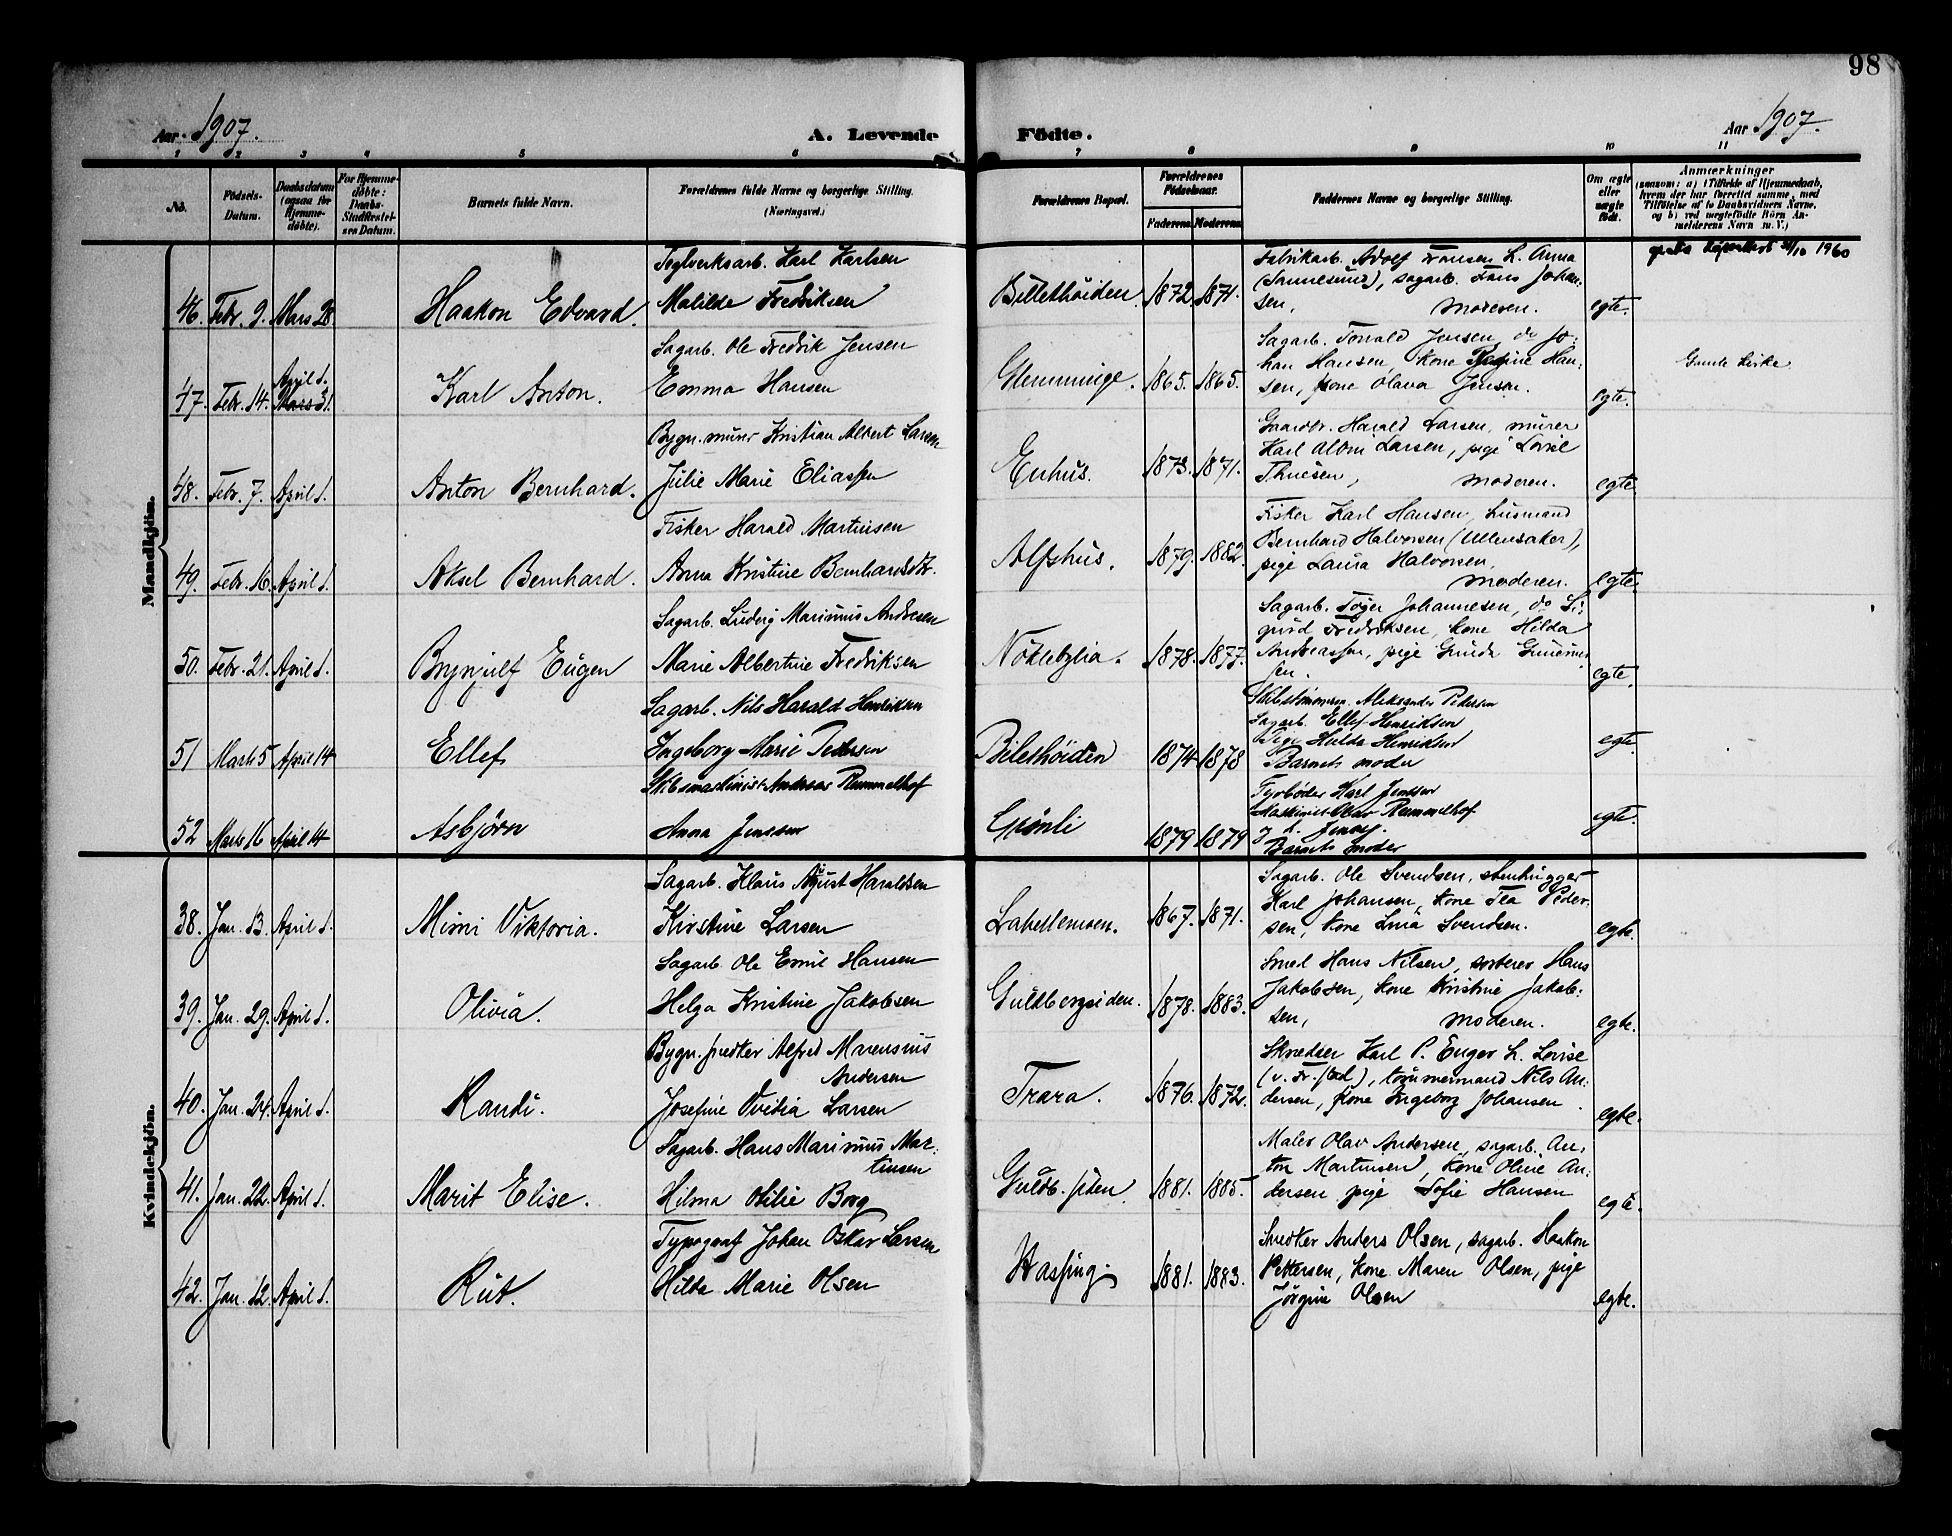 98
Aar 1907.
A. Levende Födte.
Aar 1907.
1 2 3 4 5 6 7 8 9 10 11
No.
Födsels-Datum.
Daabsdatum (ogsaa for Hjemmedöbte).
For Hjemmedöbte: Daabs-Stadfæstelses Datum.
Barnets fulde Navn.
Forældrenes fulde Navne og borgerlige Stilling.
(Næringsvei.)
Forældrenes Bopæl.
Forældrenes Födselsaar.
Faderens Moderens
Faddernes Navne og borgerlige Stilling.
Om ægte eller uægte födt.
Anmærkninger
(saasom: a) i Tilfælde af Hjemmedaab, hvem der har forrettet samme, med Tilföielse af to Daabsvidners Navne, og b) ved uægtefödte Börn Anmelderens Navn m. V.)
Mandkjön.
46. Febr. 9. Mars 28
Haakon Edvard.
Teglverksarb. Karl Karlsen
Matilde Fredriksen
Billethöiden. 1872. 1871.
Fabrikarb. Adolf Fransen h. Anna
(Sannesund), sagarb. Frans Johan-
sen, moderen.
egte.
1960
47. Febr. 14. April 1. Mars 31.
Karl Anton.
Sagarb. Ole Fredrik Jensen
Emma Hansen
Glemminge. 1865. 1865.
Sagarb. Torvald Jensen, do Jo-
han Hansen, kone Regine Han-
sen, kone Olava Jensen.
egte.
Gamle Kirke
48. Febr. 7. April 1.
Anton Bernhard.
Bygn.murer Kristian Albert Larsen
Julie Marie Eliassen
Enhus. 1873. 1871.
Gaardbr. Harald Larsen, murer
Karl Larsen, pige Lovise
Thuesen, moderen.
egte
49. Febr. 16. April 1.
Aksel Bernhard.
Fisker Harald Martinsen
Anna Kristine Bernhardsdtr.
Alfshus. 1879. 1882.
Fisker Karl Hansen, husmand
Bernhard Halvorsen (Ullensaker),
pige Laura Halvorsen,
moderen.
egte.
50. Febr. 21. April 1.
Brynjulf Eugen
Sagarb. Ludvig Marinius Andresen
Marie Albertine Fredriksen
Nöklebylia. 1878. 1877.
Sagarb. Johannesen, do Si-
gurd Fredriksen, kone Hilda
Andreassen, pige Gunda
sen.
egte.
51 Marts 5 April 14
Ellef
Sagarb. Nils Harald Henriksen
Ingeborg Marie Pedersen
Bilethöiden 1874 1878
Skibstömmerm. Aleksander Pedersen
Sagarb. Ellef Henriksen
Pige Hulda Henriksen
Barnets moder
egte
52 Marts 16 April 14
Asbjörn
Skibsmaskinist Andreas Rummelhof
Anna Jenssen
Grönli 1879 1879
Fyrböder Karl Jenssen
Maskinist Olav Rummelhof
Jenny.
Barnets moder
egte.
Kvindekjön.
38. Jan. 13. April 1.
Mimi Viktoria.
Sagarb. Klaus August Haraldsen
Kirstine Larsen
Labellemoen. 1867. 1871.
Sagarb. Ole Svendsen, stenhugger
Karl Johansen, kone Tea Peder-
sen, kone Lina Svendsen.
egte.
39. Jan. 29. April 1.
Olivia.
Sagarb. Ole Emil Hansen
Helga Kristine Jakobsen
Guldbergsiden. 1878. 1883.
Smed Hans Nilsen, sorterer Hans
Jakobsen, kone Kristine Jakob-
sen, moderen.
egte.
40. Jan. 24. April 1.
Randi.
Bygn.snedker Alfred Marensius
Andersen
Josefine Ovidia Larsen
Trara. 1876. 1872.
Skredder Karl P. Enger h. Lovise
(v. Fr.stad), tömmermand Nils An-
dersen, kone Ingeborg Johansen.
egte.
41. Jan. 22. April 1.
Marit Elise.
Sagarb. Hans Marinius Mar-
tinsen
Hilma Otilie Borg
Guldb.siden. 1881. 1885.
Maler Olav Andersen, sagarb. An-
ton Martinsen, kone Oline An-
dersen pige Sofie Hansen
egte.
42. Jan. 12. April 1.
Rut.
Typograf Johan Oskar Larsen
Hilda Marie Olsen
Hassing. 1881. 1883.
Snedker Anders Olsen, sagarb. Haakon
Pettersen, kone Maren Olsen, pige
Jörgine Olsen
egte.